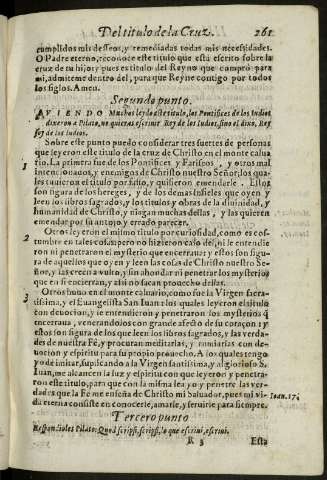 Del titulo de la Cruz. 261
cumplidos mis desseos, y remediadas todas mis necessidades.
O Padre eterno, reconoced este titulo que está escrito sobre la
cruz de tu hijo: y pues es titulo del Reyno que compró para
mi, admiteme dentro del, para que Reyne contigo por todos
los siglos. Amen.
Segundo punto.
AVIENDO Muchos leydo este titulo, los Pontifices de los Iudios
dixeron a Pilato, no quieras escriuir Rey de los Iudios, sino el dixo, Rey
soy de los Iudios.
Sobre este punto puedo considerar tres suertes de personas
que leyeron este titulo de la cruz de Christo en el monte calua
1 rio. La primera fue de los Pontifices y Fariseos, y otros mal
intencionados, y enemigos de Christo nuestro Señor, los qua-
les tuuieron el titulo por falso, y quisieron enmendarle. Estos
son figura de los hereges, y de los demas infieles que oyen y
leen los libros sagrados, y los titulos y obras de la diuinidad, y
humanidad de Christo, y niegan muchas dellas, y las quieren
emendar por su antojo y errado parecer.
2 Otros leyeron el mismo titulo por curiosidad, como es cos-
tumbre en tales cosas, pero no hizieron caso del, ni le entendie
ron ni penetraron el mysterio que encerraua: y estos son figu-
ra de aquellos que oyen y leen las cosas de Christo nuestro Se-
ñor, y las creen a vulto, y sin ahondar ni penetrar los mysterios
que en si encierran, y assi no sacan prouecho dellas.
Otros huuo en el monte caluario, como fue la Virgen sacra-
3 tissima, y el Euangelista San Iuan: los quales leyeron el titulo
con deuocion, y le entendieron y penetraron los mysterios q̃
encerraua, venerandolos con grande afecto de su coraçon: y
estos son figura de los que leen los libros sagrados, y las verda-
des de nuestra Fè, y procuran meditarlas, y rumiarlas con de-
uocion y espiritu para su propio prouecho. A los quales tengo
yo de imitar, suplicando a la Virgen santissima, y al glorioso S.
Iuan, me alcancen la luz y espiritu con que leyeron y penetra-
ron este titulo, para que con la misma lea yo y penetre las ver-
dades que la Fe me enseña de Christo mi Saluador, pues mi vi-
da eterna consiste en conocerle, amarle, y seruirle para siempre.
Ioan. 17.
Tercero punto
Respondioles Pilato: Quod scripsi, scripsi, lo que escriui, escriui.
R 3 Esta